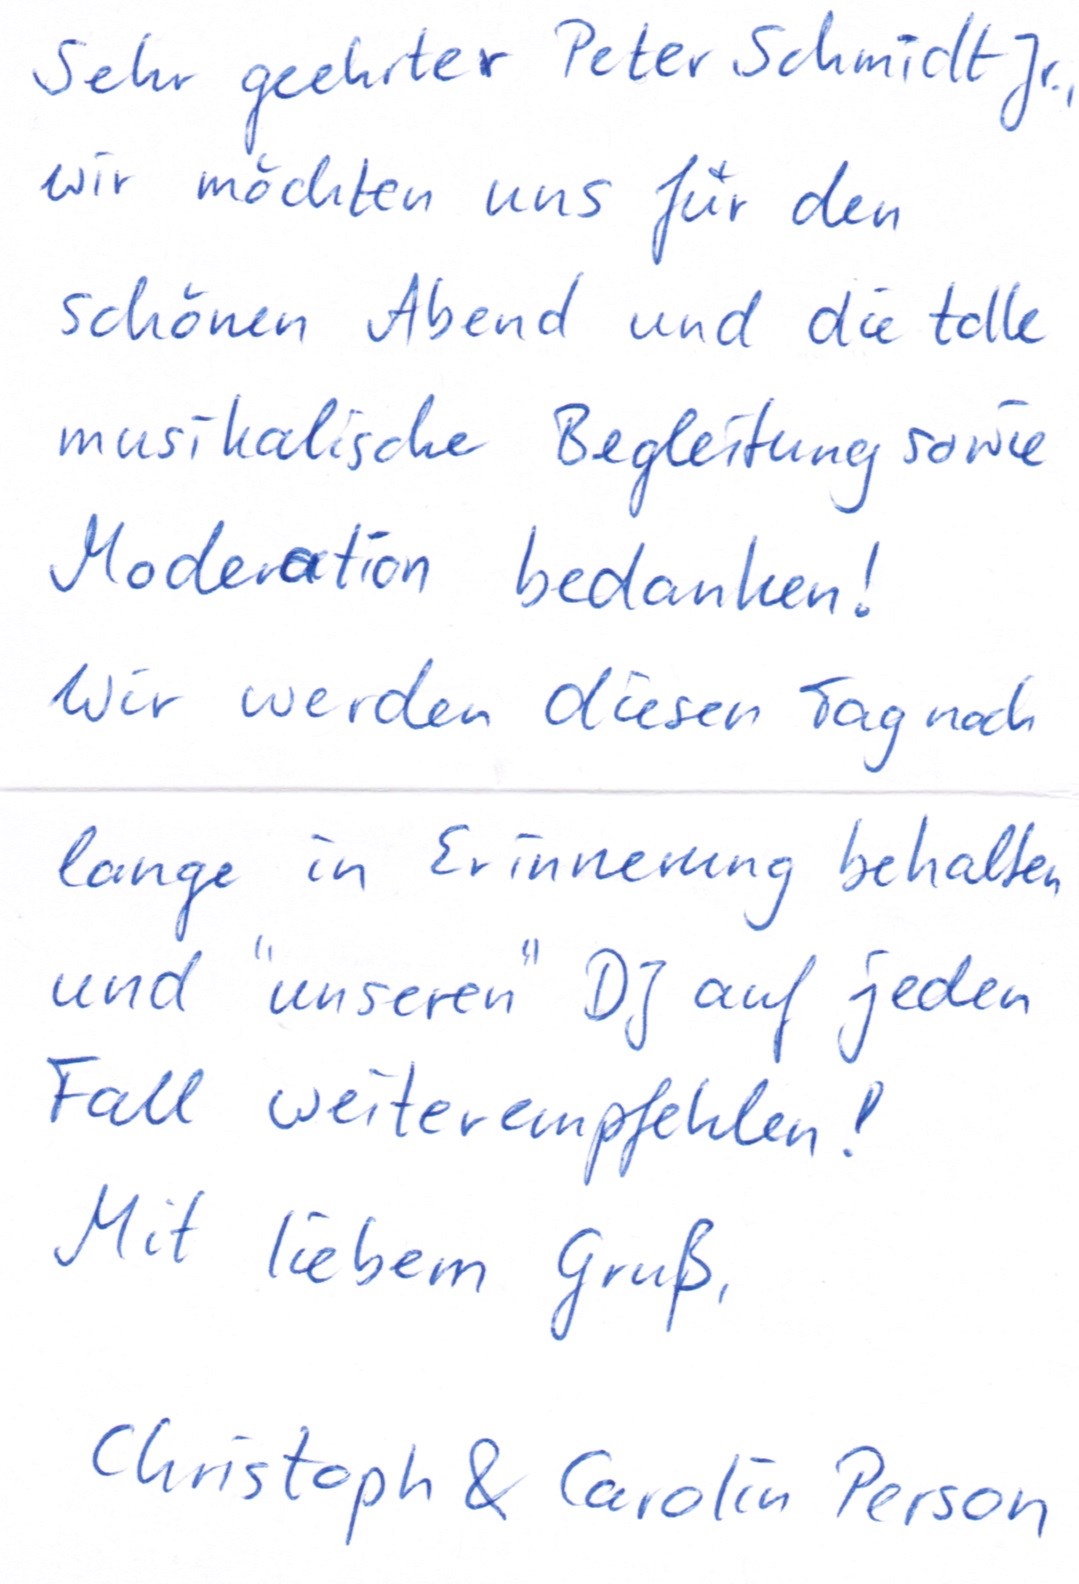 Sehr geehrter Peter Schmidt Jr.,
wir möchten uns für den
schönen Abend und die tolle
musikalische Begleitung sowie
Moderation bedanken!
Wir werden diesen Tag noch
lange in Erinnerung behalten
und "unseren" DJ auf jeden
Fall weiterempfehlen!
Mit liebem Gruß,
Christoph & Carolin Person